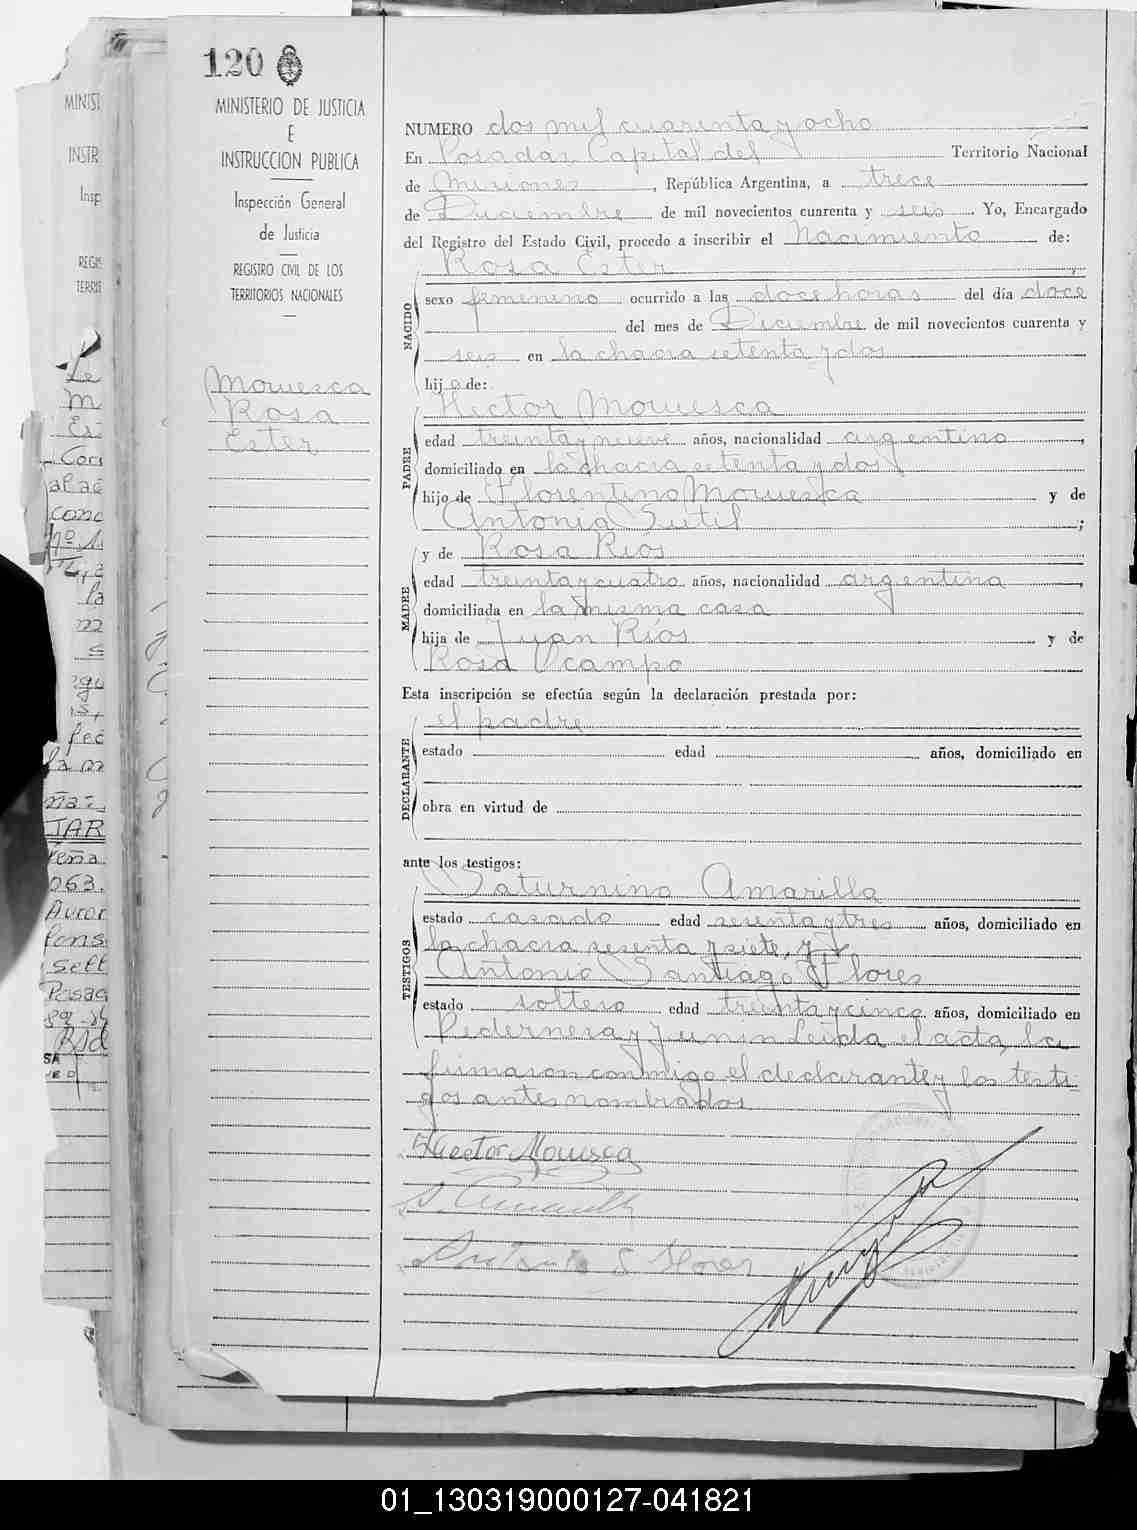 120
MINISTERIO DE JUSTICIA
E
INSTRUCCION PUBLICA
Inspección General
de Justicia
REGISTRO CIVIL DE LOS
TERRITORIOS NACIONALES
Rosa
Ester
NUMERO dos mil cuarenta y ocho
En Posadas Capital del Territorio Nacional
de Misiones, República Argentina, a trece
de Diciembre de mil novecientos cuarenta y seis. Yo, Encargado
del Registro del Estado Civil, procedo a inscribir el Nacimiento de:
Rosa Ester
NACIDO
sexo femenino ocurrido a las doce horas del día doce
del mes de Diciembre de mil novecientos cuarenta y
seis en la chacra setenta y dos
hija de:
PADRE
Hector
edad treinta y nueve años, nacionalidad argentino,
domiciliado en la chacra setenta y dos
hijo de Florentino y de
Antonia Sutil;
MADRE
y de Rosa Ríos
edad treinta y cuatro años, nacionalidad argentina,
domiciliada en la misma casa
hija de Juan Ríos y de
Rosa Ocampo
Esta inscripción se efectúa según la declaración prestada por:
DECLARANTE
el padre
estado edad años, domiciliado en
obra en virtud de
ante los testigos:
TESTIGOS
Saturnino Amarilla
estado casado edad sesenta y tres años, domiciliado en
la chacra sesenta y siete, y
Antonio Santiago Flores
estado soltero edad treinta y cinco años, domiciliado en
Pedernera y Junin Leida el acta, la
firmaron conmigo el declarante y los testi-
gos antes nombrados
Hector
S. Amarilla
Antonio S Flores
01_130319000127-041821